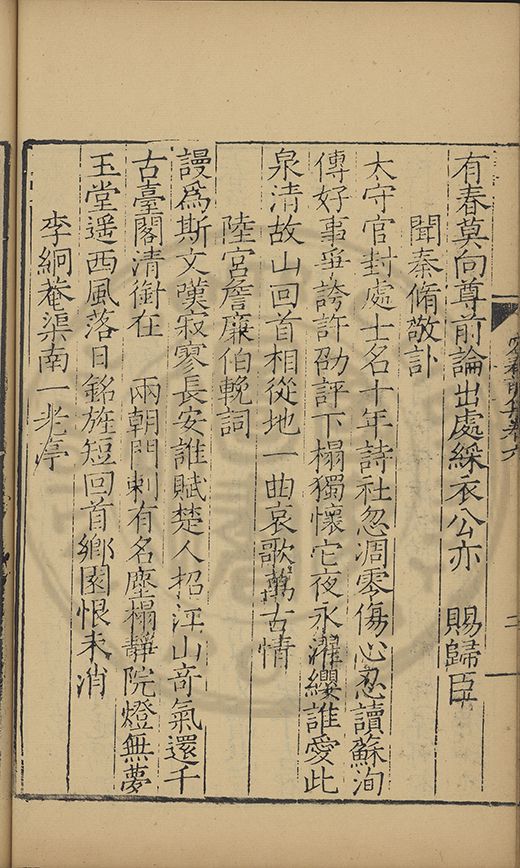 有春莫向尊前論出處綵衣公亦　賜歸臣
聞秦脩敬訃
太守官封處士名十年詩社忽凋零傷心忍讀蘇洵
傳好事爭誇許劭評下榻獨懷它夜永濯纓誰愛此
泉清故山回首相從地一曲哀歌萬古情
陸宮詹廉伯輓詞
謾為斯文嘆寂寥長安誰賦楚人招江山奇氣還千
古臺閣清銜在　兩朝門刺有名塵榻靜院燈無夢
玉堂遥西風落日銘旌短回首鄉園恨未消
李絅菴渠南一老亭
卷六
二